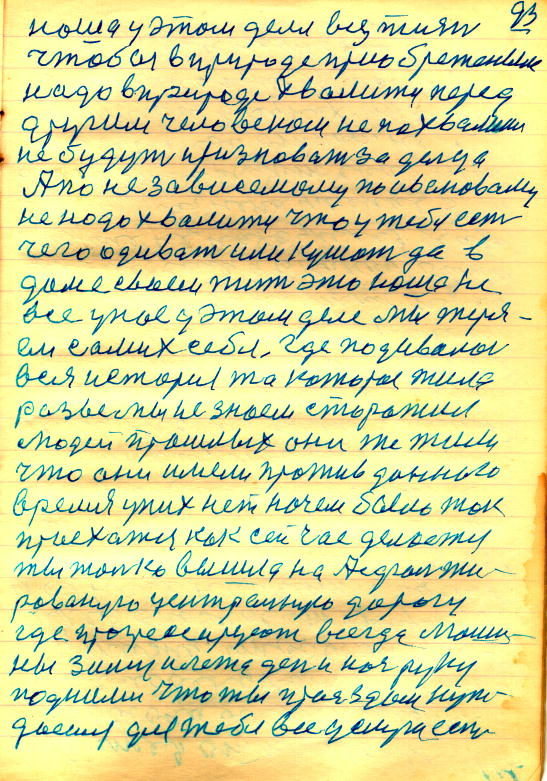 93
наша у этом деле вся тияп
чтобы в природе приобретение
надо в природе хвалити перед
другим человеком не похвалиш
не будут признават за деда
А по независемому по ивановому
не надо хвалити что у тебя ест
чего одиват или кушат да в
доме своем жит это наша не
все у нас у этом деле мы теря-
ем самих себя. Где подивалас
вся история та которая жила
разве мы не знаем старожил
людей прошлых они же жили
что они имели против данного
время у них нет начем было так
приехатя как сейчас делается
ты толко вышел на Асфалти-
рованую централную дорогу
где прогресируют всегда маши-
ны зиму и лета ден и ноч руку
подними что ты проездом нуж-
даеш для тебя все услуги ест